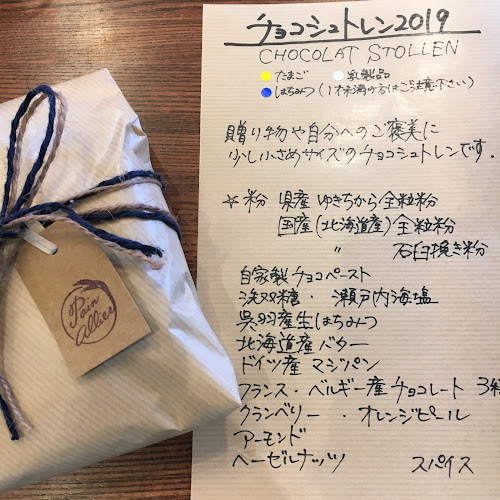 チョコシュトレン2019
CHOCOLAT STOLLEN
たまご 乳製品
はちみつ(1才未満の方はご注意下さい)
贈り物や自分へのご褒美に
少し小さめサイズのチョコシュトレンです。
☆粉 県産 ゆきちから全粒粉
国産(北海道産)全粒粉
〃 石臼挽き粉
自家製チョコペースト
洗双糖・瀬戸内海塩
呉羽産生はちみつ
北海道産バター
ドイツ産 マジパン
フランス・ベルギー産チョコレート 3種
クランベリー・オレンジピール
アーモンド
ヘーゼルナッツ スパイス
Pain
Allier